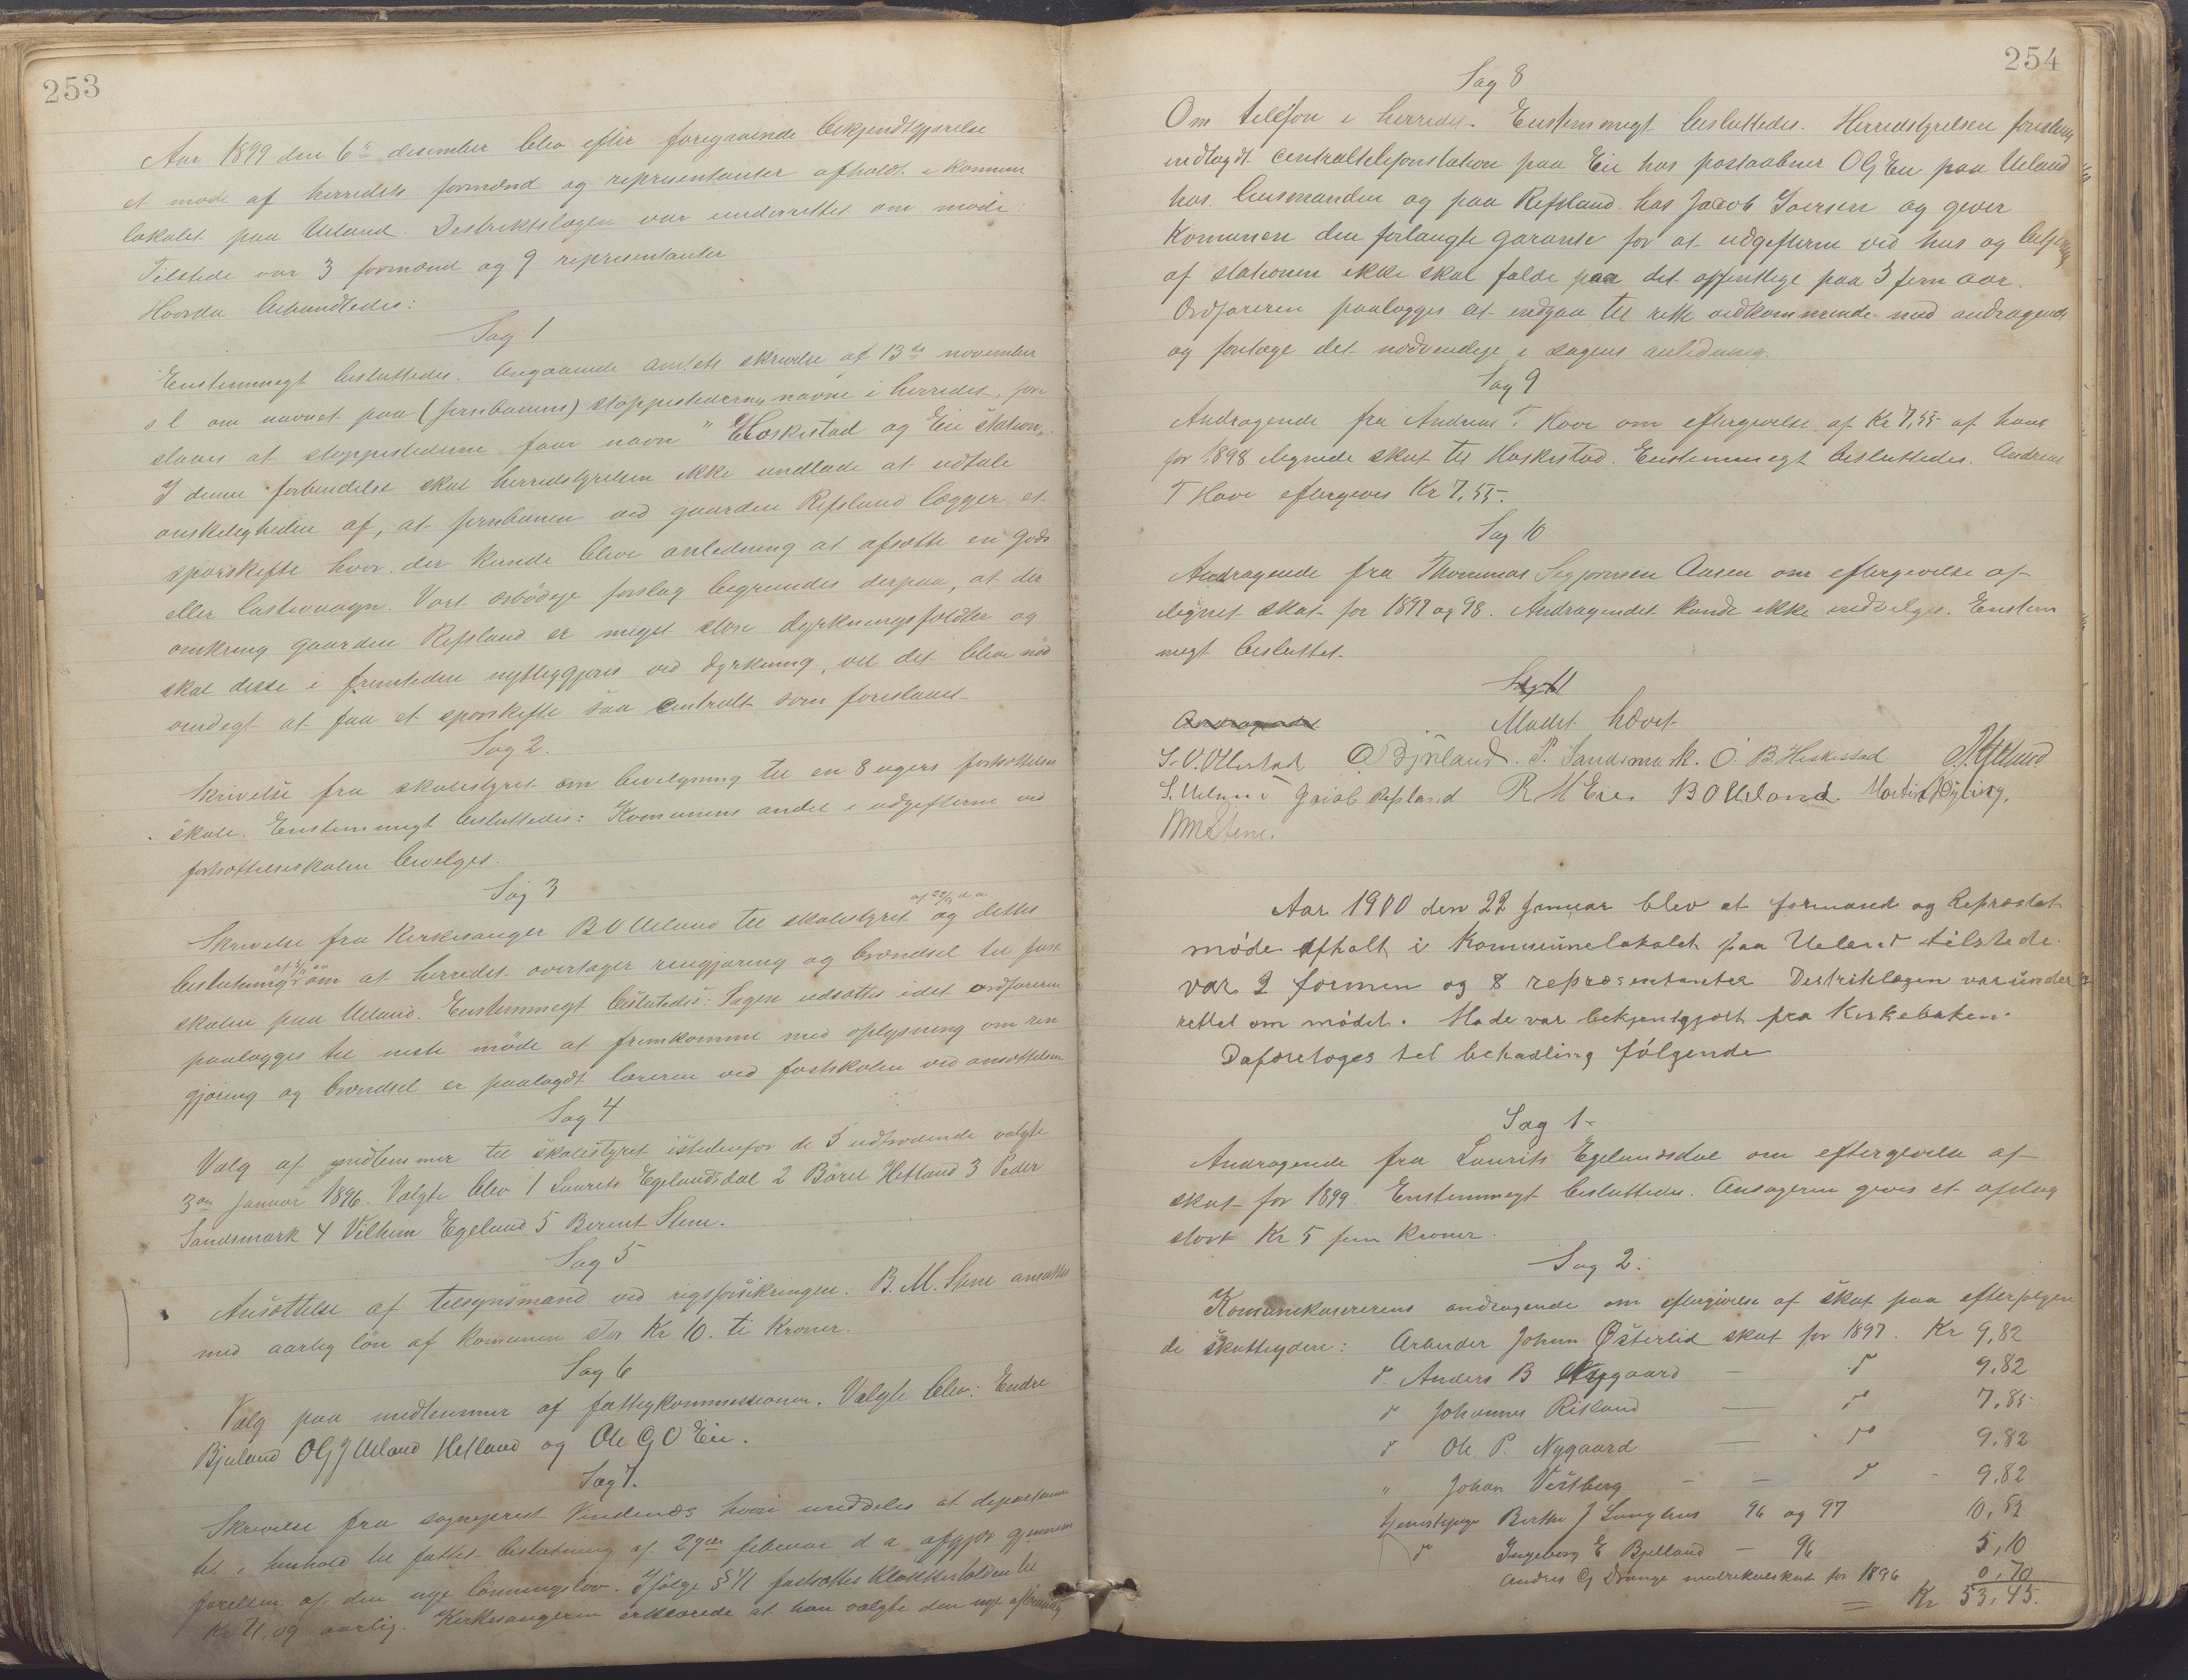 253
Aar 1899 den 6te desember blev efter foregaaende bekjendtgjørelse
et møde af herredets formænd og repræsentanter afholdt i kommune
lokalet paa Ueland. Destriktslægen var underrettet om møde:
Tilstede var 3 formænd og 9 representanter
Hvorda behandledes:
Sag 1
Enstemmegt besluttedes. Angaaende amtets skrivelse af 13de november
s l om navnet paa (jernbanens) stoppestedernes navne i herredet, fore
slaaes at stoppestederne faar navn "Heskestad og Eie station".
I denne forbindelse skal herredstyrelsen ikke undlade at udtale
ønskeligheden af, at jernbanen ved gaarden Refsland lægger et
sporskifte hvor der kunde blive anledning at afsætte en gods
eller lastevaagn. Vort ærbødige forslag begrundes derpaa, at der
omkring gaarden Refsland er meget store dyrkningsfældter og
skal disse i fremtiden nyttiggjøres ved dyrkning, vil det blive nød
vendegt at faa et sporskifte saa centralt som foreslaaet
Sag 2.
Skrivelse fra skolestyret om bevilgning til en 8 ugers fortsættelses
skole. Enstemmegt besluttedes: Komunens andel i udgifterne ved
fortsættelsesskolen bevelges.
Sag 3
Skrivelse fra Kirkesanger B O Ueland til skolestyret af 22/9 d a og dettes
beslutning af 5/11 om at herredet overtager rengjøring og brændsel til fast
skolen paa Ueland. Enstemmegt beslutedes: Sagen udsættes idet ordføreren
paalægges til neste møde at fremkomme med oplysning om ren
gjøring og brændsel er paalagdt læreren ved fastskolen ved ansættelsen
Sag 4
Valg af medlemmer til skolestyret istedenfor de 5 udtrædende valgte
3die Januar 1896. Valgte blev 1 Laurits Egelandsdal 2 Børel Hetland 3 Peder
Sandsmark 4 Vilhem Egeland 5 Bernt Stene.
Sag 5
Ansættelse af telsynsmand ved rigsforsikringen. B. M. Stene ansættes
med aarlig løn af komunen stor Kr 10. ti Kroner.
Sag 6
Valg paa medlemmer af fattigkommissionen. Valgte blev: Endre
Bjuland OG J Ueland Hetland og Ole G O Eie.
Sag 7.
Skrivelse fra sogneprest Vindenæs hvori meddeles at departemen
tet i henhold til fattet beslutning af 27de februar d a afgjør gjennem
førelsen af den nye lønningslov. Ifølge § 11 fastsættes Klokkerholden til
Kr 71.09 aarlig. Kirkesangeren erklærede at han valgte den nye aflønning
254
Sag 8
Om telefon i herredet. Enstemmegt besluttedes. Herredstyrelsen foreslaar
indlagdt centraltelefonstation paa Eie hos postaabner O G Eie paa Ueland
hos lensmanden og paa Refsland hos Jacob Iversen og gever
Komunen den forlangte garante for at udgefterne ved hus og betjening
af stationen ikke skal falde paa det offentlege paa 5 fem aar.
Ordføreren paalægges at indgaa til rette vedkommende med andragende
og foretage det nødvendige i sagens anledning.
Sag 9
Andragende fra Andreas T. Hove om eftergivelse af Kr 7,55 af hans
for 1898 ilignede skat til Heskestad. Enstemmegt besluttedes. Andreas
T Hove eftergives Kr 7,55.
Sag 10
Andragende fra Thommas Segjørnsen Aasen om eftergivelse af
ilignet skat for 1897 og 98. Andragendet kunde ikke indvilges. Enstem
megt besluttet.
Sag 11
Andragendet
Mødet hævet
S. O. Ollestad O Bjuland. P. Sandsmark. O. B. Heskestad
S. Ueland Jacob Refsland R M Eie B O Ueland Martin Dybing.
B M Stene.
Aar 1900 den 22 Januar blev et formænd og Repræstat
møde afholt i Kommunelokalet paa Ueland tilstede
var 2 formen og 8 repræsentanter Destriklægen var under
rettet om mødet. Mødet var bekjentgjort fra Kirkebaken.
Daforetoges tel behadling følgende
Sag 1-
Andragende fra Laurits Egelandsdal om eftergivelse af
skat for 1899. Enstemmegt besluttedes. Ansøgeren gives et afslag
stort Kr 5 fem Kroner.
Sag 2.
Komunekasererens andragende om eftergivelse af skat paa efterfølgen
de skattydere: Arbeider Johan Østerlid skat for 1897. Kr 9,82
" Anders B Nygaard — " 9,82
" Johannes Risland — " 7,85
" Ole P. Nygaard — " 9,82
" Johan Vestberg — — " 9,82
Tjenestepige Berthe J Langhus 96 og 97 0,52
" Ingeborg E Bjelland — 96 5,10
Andres G Drange matrikulskat for 1896 0,70
= Kr 53,45.